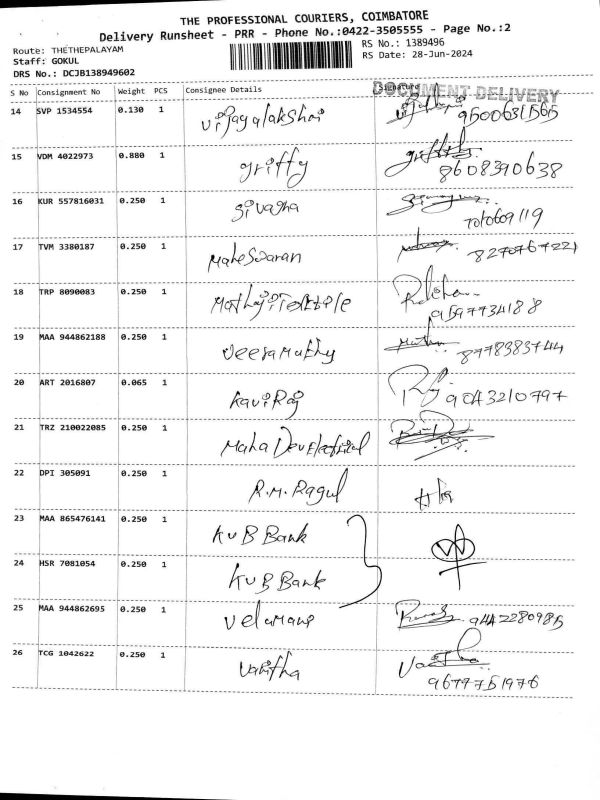 THE PROFESSIONAL COURIERS, COIMBATORE
Delivery Runsheet - PRR - Phone No.:0422-3505555 - Page No.:2
Route: THETHEPALAYAM
RS No.: 1389496
Staff: GOKUL
RS Date: 28-Jun-2024
DRS No.: DCJB138949602
S No Consignment No Weight PCS Consignee Details Signature
DOCUMENT DELIVERY
14 SVP 1534554 0.130 1 Vijayalakshmi
15 VDM 4022973 0.880 1 griffy
8608390638
16 KUR 557816031 0.250 1
17 TVM 3380187 0.250 1 Maheswaran
8270767221
18 TRP 8090083 0.250 1
9597734188
19 MAA 944862188 0.250 1 Veeramuthy
8778383744
20 ART 2016807 0.065 1 Kaviraj 9043210797
21 TRZ 210022085 0.250 1 Maha Dev Electrical
22 DPI 305091 0.250 1 R.M. Ragul
23 MAA 865476141 0.250 1 KVB Bank
24 HSR 7081054 0.250 1 KVB Bank
25 MAA 944862695 0.250 1 Velumani 9442280985
26 TCG 1042622 0.250 1 Vanitha
9677751976